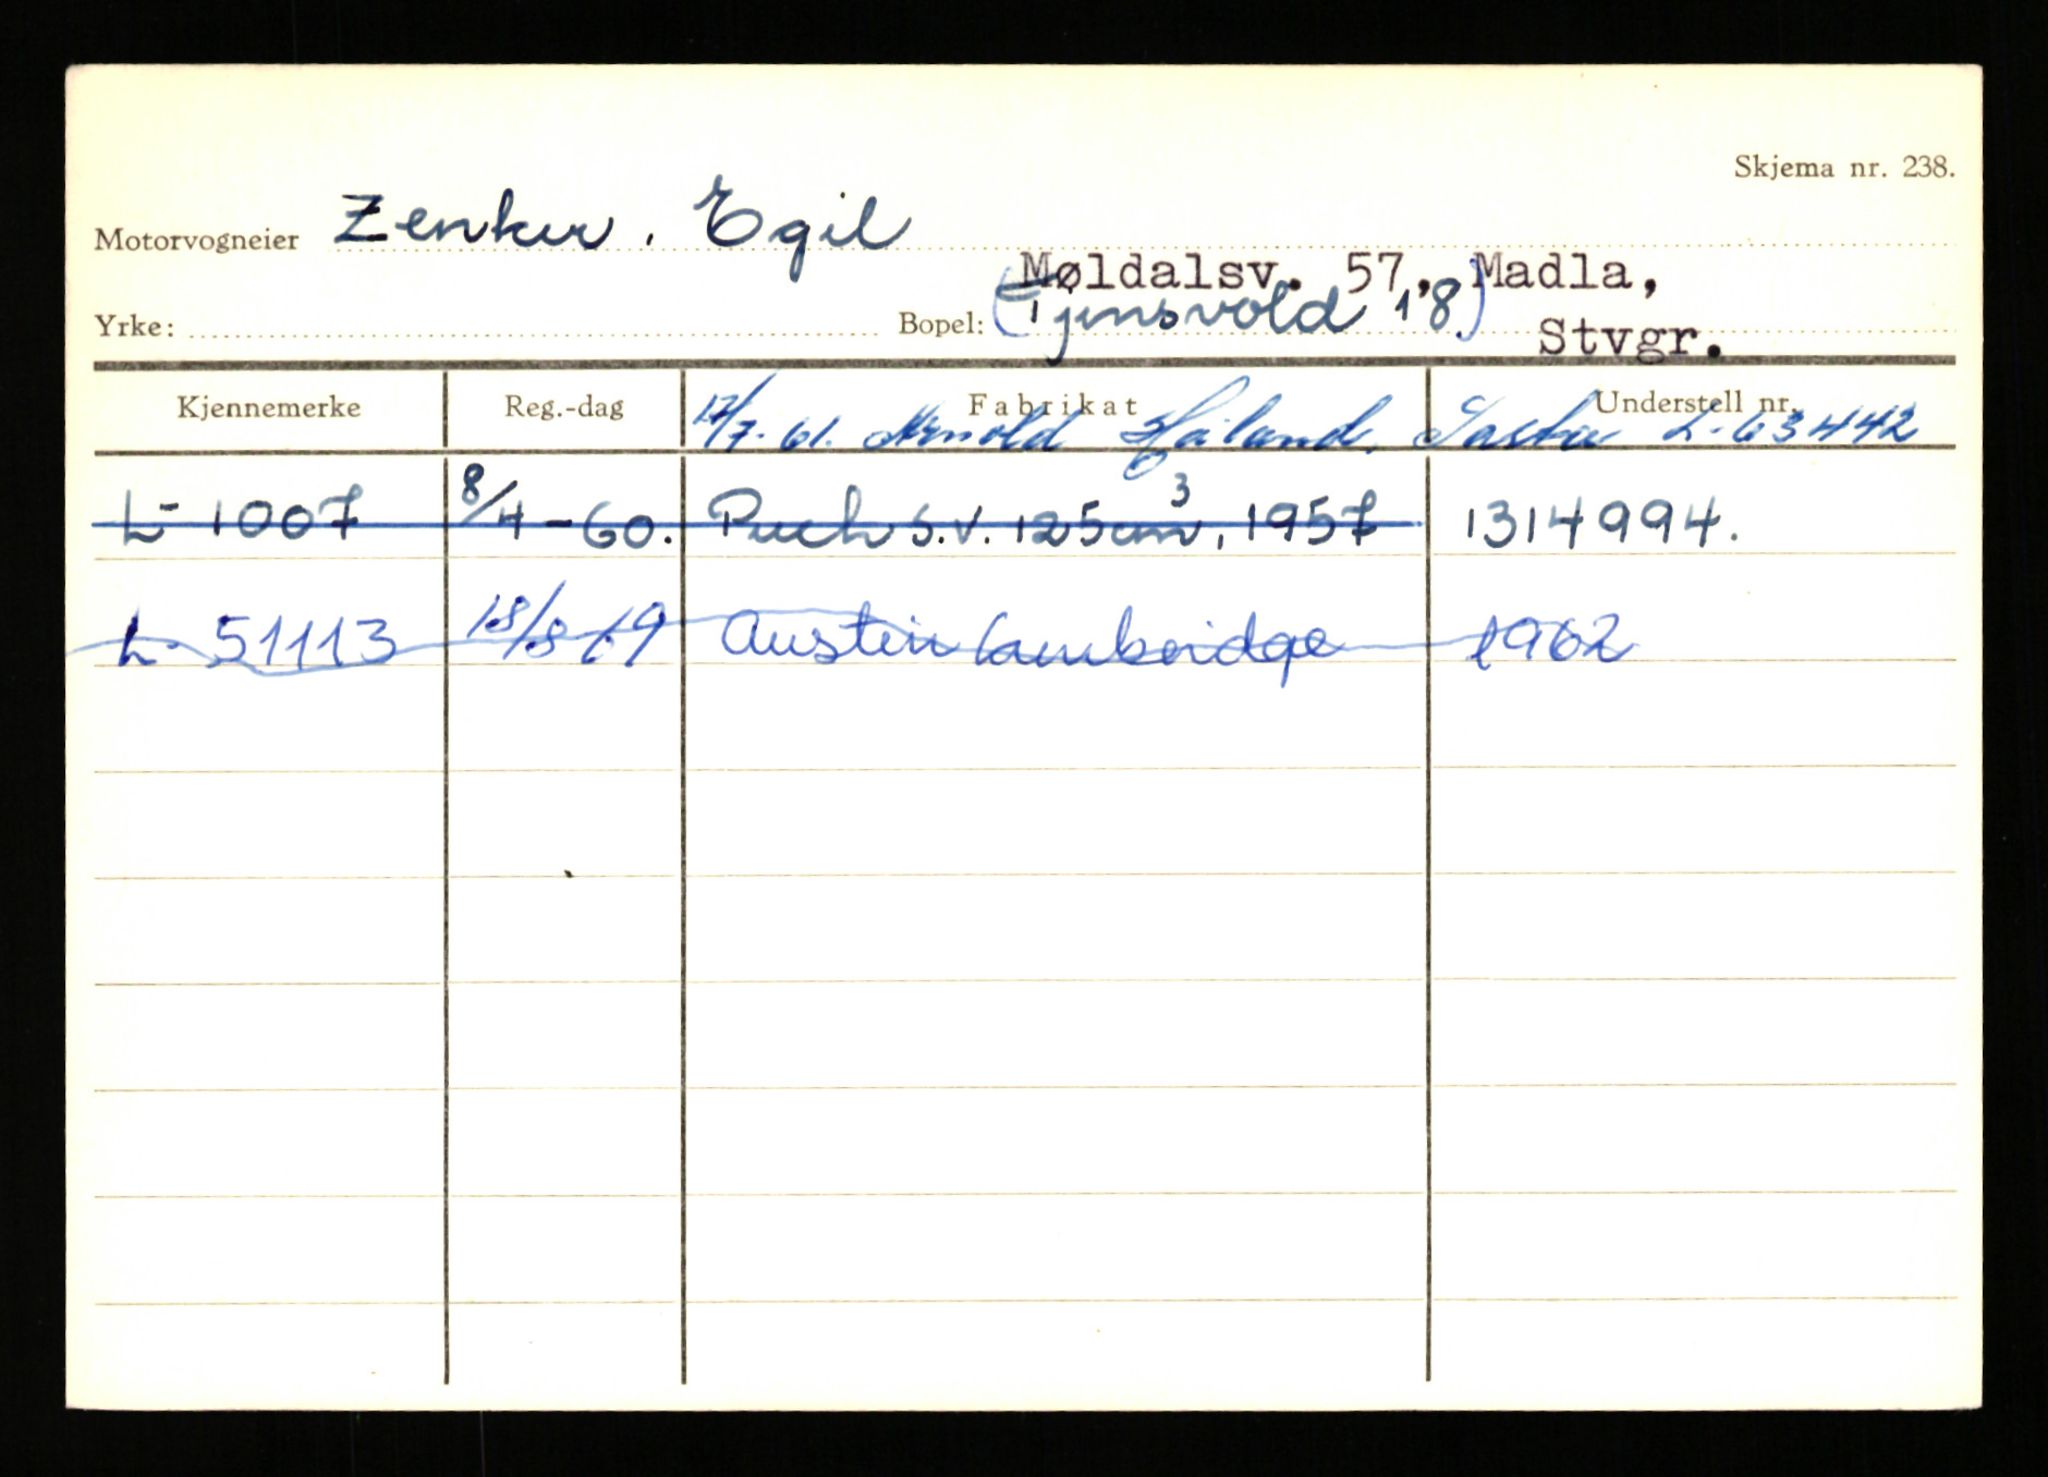 Skjema nr. 238.
Motorvogneier Zenker, Egil
Møldalsv. 57, Madla,
Yrke: Bopel: (Tjensvold 18) Stvgr.
Kjennemerke Reg.-dag Fabrikat Understell nr.
17/7-61. Arnold Høiland, L-63442
L-1007 8/4-60. Puch S.V. 125cm3, 1957 1314994.
L- 51113 18/8 69 Austin Cambridge 1962